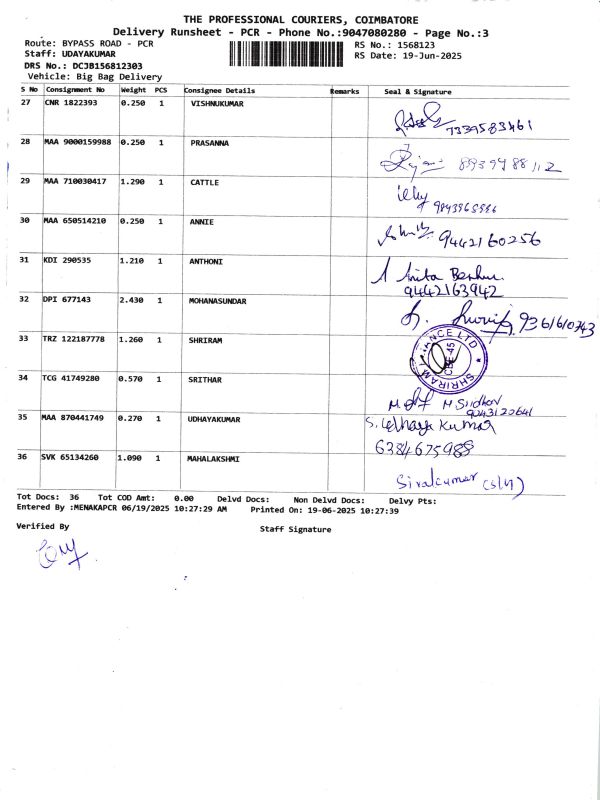 THE PROFESSIONAL COURIERS, COIMBATORE
Delivery Runsheet - PCR - Phone No.:9047080280 - Page No.:3
Route: BYPASS ROAD - PCR
RS No.: 1568123
Staff: UDAYAKUMAR
RS Date: 19-Jun-2025
DRS No.: DCJB156812303
Vehicle: Big Bag Delivery
S No Consignment No Weight PCS Consignee Details Remarks Seal & Signature
27 CNR 1822393 0.250 1 VISHNUKUMAR
7339583461
28 MAA 9000159988 0.250 1 PRASANNA
29 MAA 710030417 1.290 1 CATTLE
30 MAA 650514210 0.250 1 ANNIE
9442160256
31 KDI 290535 1.210 1 ANTHONI
Anita
9442163942
32 DPI 677143 2.430 1 MOHANASUNDAR
33 TRZ 122187778 1.260 1 SHRIRAM
34 TCG 41749280 0.570 1 SRITHAR
M Sridhar
9043120641
35 MAA 870441749 0.270 1 UDHAYAKUMAR
S. Udhaya Kumar
6384675988
36 SVK 65134260 1.090 1 MAHALAKSHMI
Sivakumar
Tot Docs: 36 Tot COD Amt: 0.00 Delvd Docs: Non Delvd Docs: Delvy Pts:
Entered By :MENAKAPCR 06/19/2025 10:27:29 AM Printed On: 19-06-2025 10:27:39
Verified By
Staff Signature